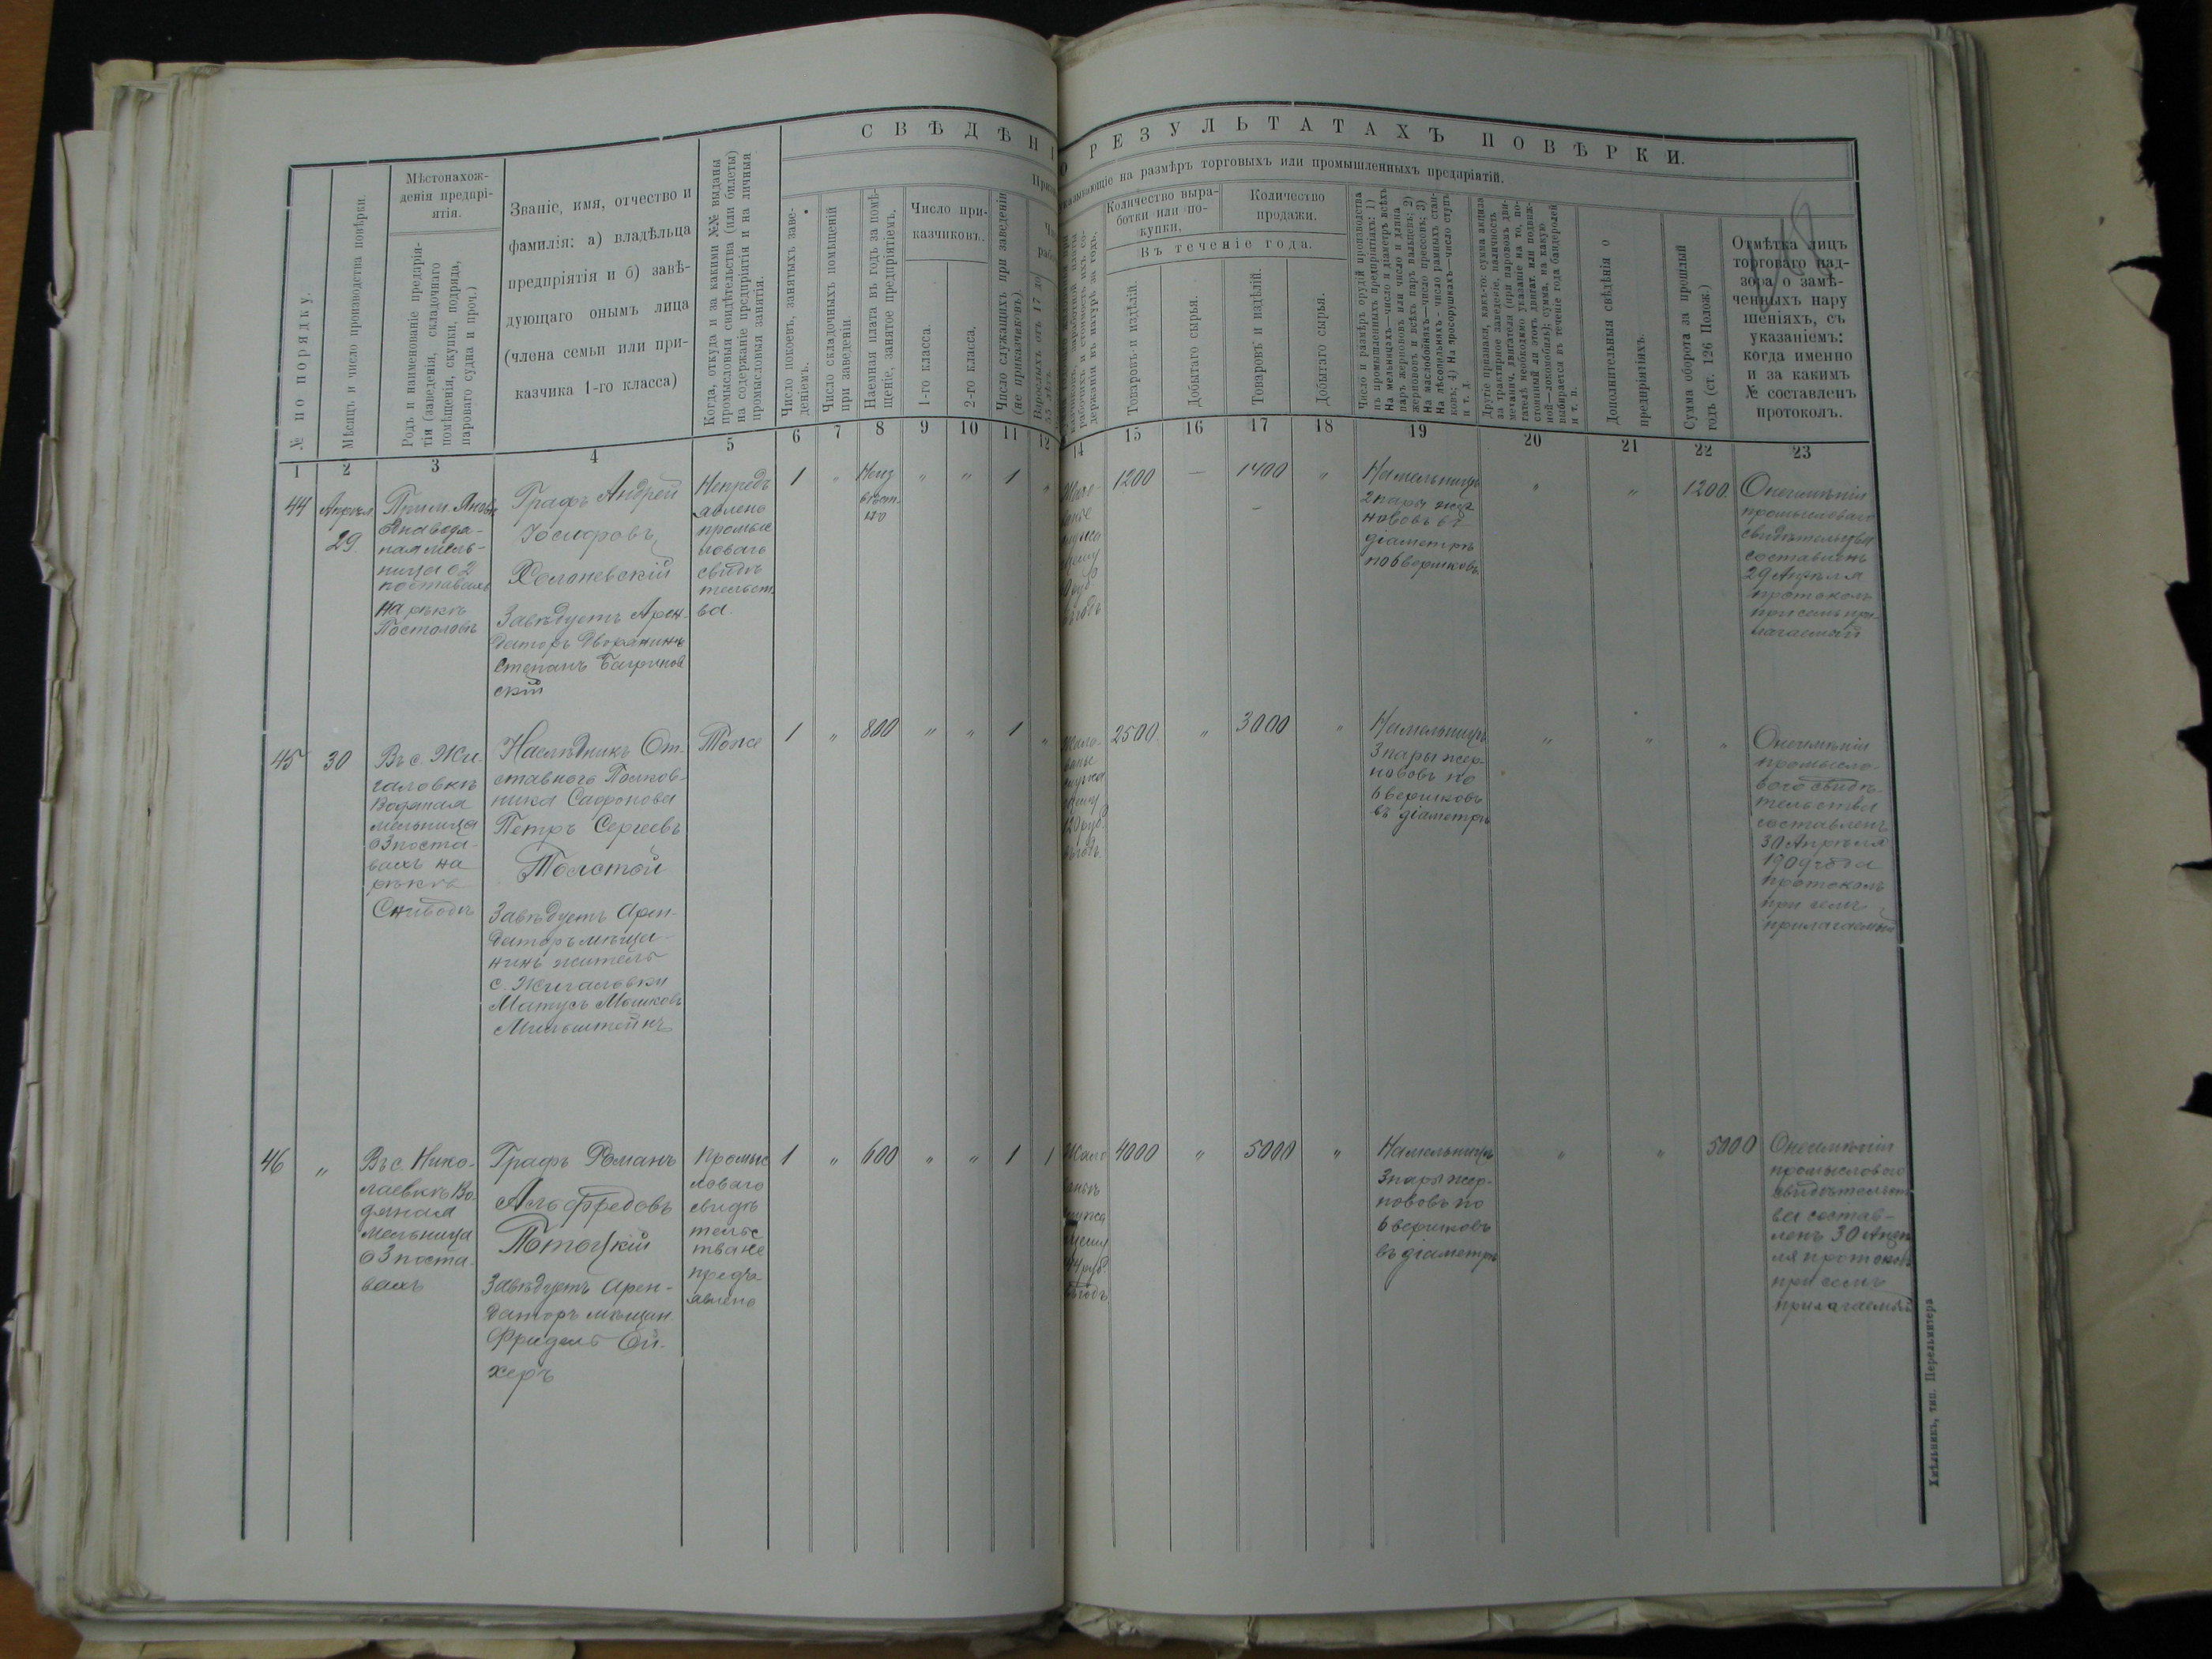 СВѢДѢНІ
О РЕЗУЛЬТАТАХЪ ПОВѢРКИ.
указывающіе на размѣръ торговыхъ или промышленныхъ предпріятій.
№ по порядку.
Мѣсяцъ и число производства повѣрки.
Мѣстонахож-
денія предпрі-
ятія.
Родъ и наименованіе предпрія-
тія (заведенія, складочнаго
помѣщенія, скупки, подряда,
пароваго судна и проч.)
Званіе, имя, отчество и
фамилія: а) владѣльца
предпріятія и б) завѣ-
дующаго онымъ лица
(члена семьи или при-
казчика 1-го класса)
Когда, откуда и за какими №№ выданы
промысловыя свидѣтельства (или билеты)
на содержаніе предпріятія и на личныя
промысловыя занятія.
Число покоевъ, занятыхъ заве-
деніемъ.
Число складочныхъ помѣщеній
при заведеніи.
Наемная плата въ годъ за помѣ-
щеніе, занятое предпріятіемъ.
Число при-
казчиковъ.
1-го класса.
2-го класса.
Число служащихъ при заведеніи
(не приказчиковъ).
Взрослыхъ отъ 17 до
55 лѣтъ.
рабочихъ и стоимость ихъ со-
держанія въ натурѣ за годъ.
Количество выра-
ботки или по-
купки.
Количество
продажи.
Въ теченіе года.
Товаровъ и издѣлій.
Добытаго сырья.
Товаровъ и издѣлій.
Добытаго сырья.
Число и размѣръ орудій производства
въ промышленныхъ предпріятіяхъ: 1)
На мельницахъ—число и діаметръ всѣхъ
паръ жернововъ или число и длина
жернововъ и всѣхъ паръ вальцевъ; 2)
На маслобойняхъ—число прессовъ; 3)
На лѣсопильняхъ—число рамныхъ стан-
ковъ; 4) На просорушкахъ—число ступъ
и т. д.
Другіе признаки, какъ-то: сумма акциза
за трактирное заведеніе, наличность
механич. двигателя (при паровомъ дви-
гателѣ необходимо указаніе на то, по-
стоянный ли этотъ двигат. или подвиж-
ной—локомобиль); сумма, на какую
выбирается въ теченіе года бандеролей
и т. п.
Дополнительныя свѣдѣнія о
предпріятіяхъ.
Сумма оборота за прошлый
годъ (ст. 126 Полож.)
Отмѣтка лицъ
торговаго над-
зора о замѣ-
ченныхъ нару
шеніяхъ, съ
указаніемъ:
когда именно
и за какимъ
№ составленъ
протоколъ.
1 2 3 4 5 6 7 8 9 10 11 12 14 15 16 17 18 19 20 21 22 23
44
Апрѣля
29
При м. Яновѣ
водя-
ная мель-
ница о 2
поставахъ
на рѣкѣ
Постоловѣ
Графъ Андрей
Іосифовъ
Холоневскій
Завѣдуетъ Арен-
даторъ дворянинъ
Степанъ Багринов
скій
Непредъ
явлено
промыс
ловаго
свидѣ
тельст
ва.
1 „
Неиз
вѣст-
но
„ „ 1 „
1200 — 1400 „
На мельницѣ
2 пары жер
нововъ въ
діаметрѣ
по 6 вершковъ
„ „ 1200
О неимѣніи
промысловаго
свидѣтельства
составленъ
29 Апрѣля
протоколъ
при семъ при-
лагаемый
45
30
Въ с. Жи-
галовкѣ
Водяная
мельница
о 3 поста-
вахъ на
рѣкѣ
Снивода
Наслѣдникъ От-
ставного Полков-
ника Сафонова
Петръ Сергеевъ
Толстой
Завѣдуетъ Арен-
даторъ мѣща-
нинъ житель
с. Жигаловки
Матусъ Мошковъ
Мильштейнъ
Тоже
1 „ 800 „ „ 1 „
Жало-
ванье
служа
щему
120 руб.
въ годъ.
2500 „ 3000 „
На мельницѣ
3 пары жер-
нововъ по
6 вершковъ
въ діаметрѣ
„ „ „
О неимѣніи
промысло-
вого свидѣ-
тельства
составленъ
30 Апрѣля
1909 года
протоколъ
при семъ
прилагаемый
46
„
Въ с. Нико-
лаевкѣ Во-
дяная
мельница
о 3 поста-
вахъ
Графъ Романъ
Альфредовъ
Потоцкій
Завѣдуетъ арен-
даторъ мѣщан.
Фридель Ой-
херъ
Промыс
ловаго
свидѣ
тельс
тва не
предъ-
явлено
1 „ 600 „ „ 1 1
4000 „ 5000 „
На мельницѣ
3 пары жер-
нововъ по
6 вершковъ
въ діаметрѣ
„ „ 5000
О неимѣніи
промыслового
свидѣтельст
ва состав-
ленъ 30 Апрѣ
ля протоколъ
при семъ
прилагаемый
Хмѣльникъ, тип. Перельмитера